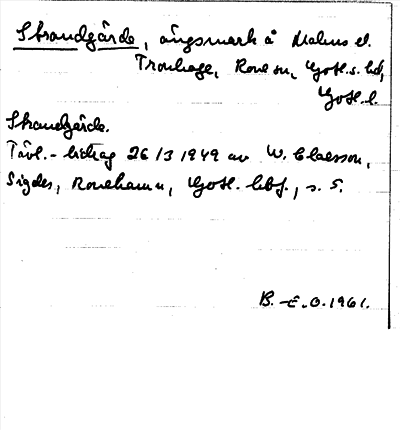 Strandgärde, ängsmark å Malms el.
Tronhage, Rone sn, Gotl.s. hd,
Gotl. l.
Strandgärde.
Tävl.-bidrag 26/3 1949 av W. Claesson,
Sigdes, Ronehamn, Gotl. hbf., s. 5.
B.-E.O. 1961.